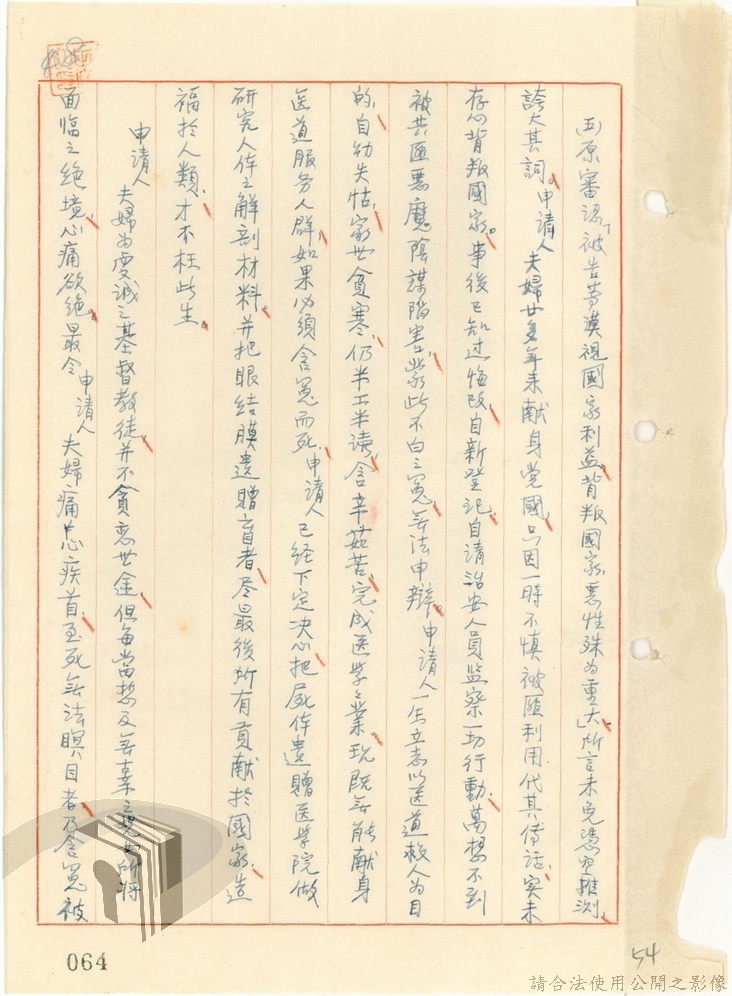 (五)原審認「被告等漠視國家利益,背叛國家,惡性殊為重大」所言未免憑空推測,
誇大其詞。申請人夫婦廿多年来献身党國,只因一時不慎被匪利用代其傳話,实未
存心背叛國家。事後已知过悔改,自新登记,自請治安人員监察一切行動,萬想不到
被共匪惡魔陰謀陷害,蒙此不白之冤,無法申辯。申請人一生立志以医道救人为目
的,自幼失怙,家世貧寒,仍半工半读,含辛茹苦,完成医学之業,现既無能献身
医道服务人群,如果必须含冤而死,申請人已经下定决心,把屍体遺贈医学院做
研究人体之解剖材料,并把眼结膜遺贈盲者,尽最後所有貢献於國家,造
福於人類,才不枉此生。
申請人夫婦为虔诚之基督教徒,并不貪恋世途,但每當想及無辜之兒女所将
面临之绝境,心痛欲绝。最令申請人夫婦痛心疾首,至死無法瞑目者,乃含冤被
064
54
請合法使用公開之影像